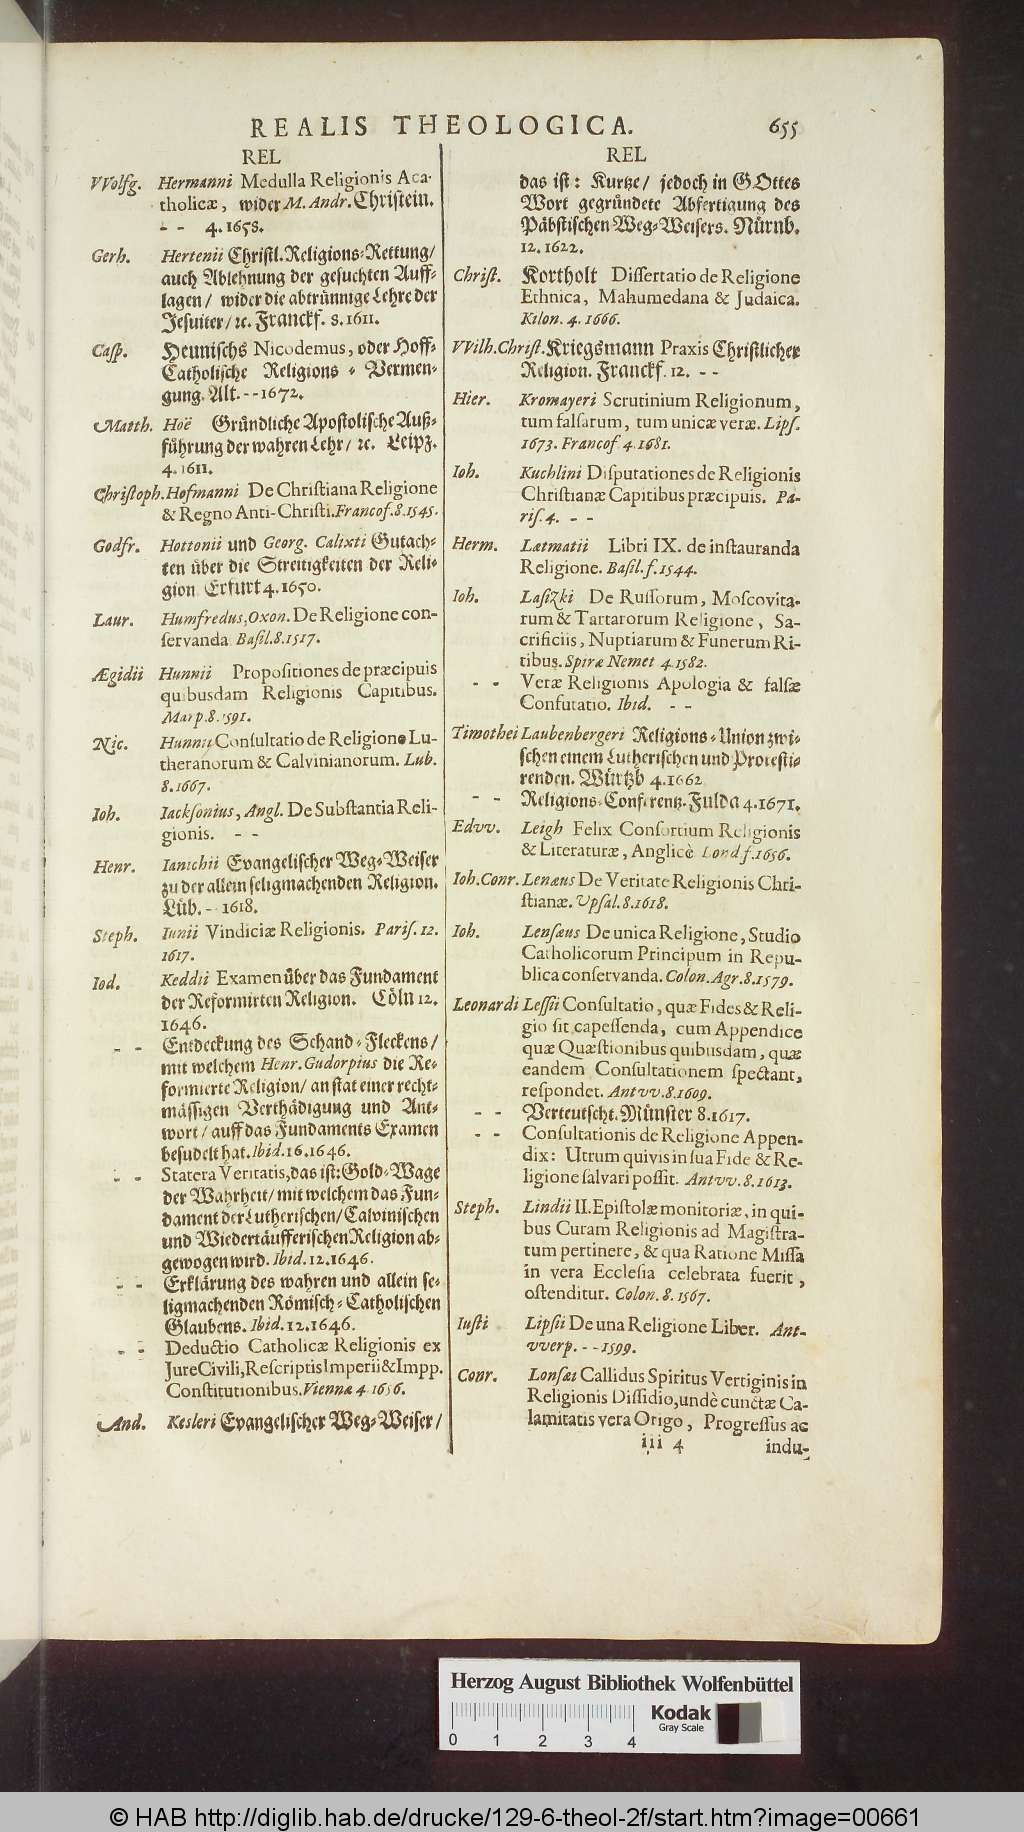 REALIS THEOLOGICA. 655
REL
VVolfg. Hermanni Medulla Religionis Aca-
tholicæ, wider M. Andr. Christein.
- - 4. 1658.
Gerh. Hertenii Christl. Religions-Rettung/
auch Ablehnung der gesuchten Auff-
lagen/ wider die abtrünnige Lehre der
Jesuiter/ ꝛc. Franckf. 8. 1611.
Casp. Heunischs Nicodemus, oder Hoff-
Catholische Religions-Vermen-
gung. Alt. - - 1672.
Matth. Hoë Gründliche Apostolische Auß-
führung der wahren Lehr/ ꝛc. Leipz.
4. 1611.
Christoph. Hofmanni De Christiana Religione
& Regno Anti-Christi. Francof. 8. 1545.
Godfr. Hottonii und Georg. Calixti Gutach-
ten über die Streitigkeiten der Reli-
gion Erfurt 4. 1650.
Laur. Humfredus, Oxon. De Religione con-
servanda Basil. 8. 1517.
Ægidii Hunnii Propositiones de præcipuis
quibusdam Religionis Capitibus.
Marp. 8. 1591.
Nic. Hunnii Consultatio de Religione Lu-
theranorum & Calvinianorum. Lub.
8. 1667.
Ioh. Iacksonius, Angl. De Substantia Reli-
gionis. - -
Henr. Ianichii Evangelischer Weg-Weiser
zu der allein seligmachenden Religion.
Lüb. - 1618.
Steph. Iunii Vindiciæ Religionis. Paris. 12.
1617.
Iod. Keddii Examen über das Fundament
der Reformirten Religion. Cöln 12.
1646.
- - Entdeckung des Schand-Fleckens/
mit welchem Henr. Gudorpius die Re-
formierte Religion/ an stat einer recht-
mässigen Verthädigung und Ant-
wort/ auff das Fundaments Examen
besudelt hat. Ibid. 16. 1646.
- - Statera Veritatis, das ist: Gold-Wage
der Wahrheit/ mit welchem das Fun-
dament der Lutherischen/ Calvinischen
und Wiedertäufferischen Religion ab-
gewogen wird. Ibid. 12. 1646.
- - Erklärung des wahren und allein se-
ligmachenden Römisch-Catholischen
Glaubens. Ibid. 12. 1646.
- - Deductio Catholicæ Religionis ex
Jure Civili, Rescriptis Imperii & Impp.
Constitutionibus. Viennæ 4. 1656.
And. Kesleri Evangelischer Weg-Weiser/
REL
das ist: Kurtze/ jedoch in GOttes
Wort gegründete Abfertigung des
Päbstischen Weg-Weisers. Nürnb.
12. 1622.
Christ. Kortholt Dissertatio de Religione
Ethnica, Mahumedana & Judaica.
Kilon. 4. 1666.
VVilh. Christ. Kriegsmann Praxis Christlicher
Religion. Franckf. 12. - -
Hier. Kromayeri Scrutinium Religionum,
tum falsarum, tum unicæ veræ. Lips.
1673. Francof. 4. 1681.
Ioh. Kuchlini Disputationes de Religionis
Christianæ Capitibus præcipuis. Pa-
ris. 4. - -
Herm. Lætmatii Libri IX. de instauranda
Religione. Basil. f. 1544.
Ioh. Lasizki De Russorum, Moscovita-
rum & Tartarorum Religione, Sa-
crificiis, Nuptiarum & Funerum Ri-
tibus. Spiræ Nemet 4. 1582.
- - Veræ Religionis Apologia & falsæ
Confutatio. Ibid. - -
Timothei Laubenbergeri Religions-Union zwi-
schen einem Lutherischen und Protesti-
renden. Würtzb 4. 1662
- - Religions-Conferentz. Fulda 4. 1671.
Edvv. Leigh Felix Consortium Religionis
& Literaturæ, Anglicè Lond f. 1656.
Ioh. Conr. Lenæus De Veritate Religionis Chri-
stianæ. Upsal. 8. 1618.
Ioh. Lensæus De unica Religione, Studio
Catholicorum Principum in Repu-
blica conservanda. Colon. Agr. 8. 1579.
Leonardi Lessii Consultatio, quæ Fides & Reli-
gio sit capessenda, cum Appendice
quæ Quæstionibus quibusdam, quæ
eandem Consultationem spectant,
respondet. Antvv. 8. 1609.
- - Verteutscht. Münster 8. 1617.
- - Consultationis de Religione Appen-
dix: Utrum quivis in sua Fide & Re-
ligione salvari possit. Antvv. 8. 1613.
Steph. Lindii II. Epistolæ monitoriæ, in qui-
bus Curam Religionis ad Magistra-
tum pertinere, & qua Ratione Missa
in vera Ecclesia celebrata fuerit,
ostenditur. Colon. 8. 1567.
Iusti Lipsii De una Religione Liber. Ant-
vverp. - - 1599.
Conr. Lonsæi Callidus Spiritus Vertiginis in
Religionis Dissidio, undè cunctæ Ca-
lamitatis vera Origo, Progressus ac
iii 4 indu-
Herzog August Bibliothek Wolfenbüttel
0 1 2 3 4
Kodak
Gray Scale
© HAB http://diglib.hab.de/drucke/129-6-theol-2f/start.htm?image=00661